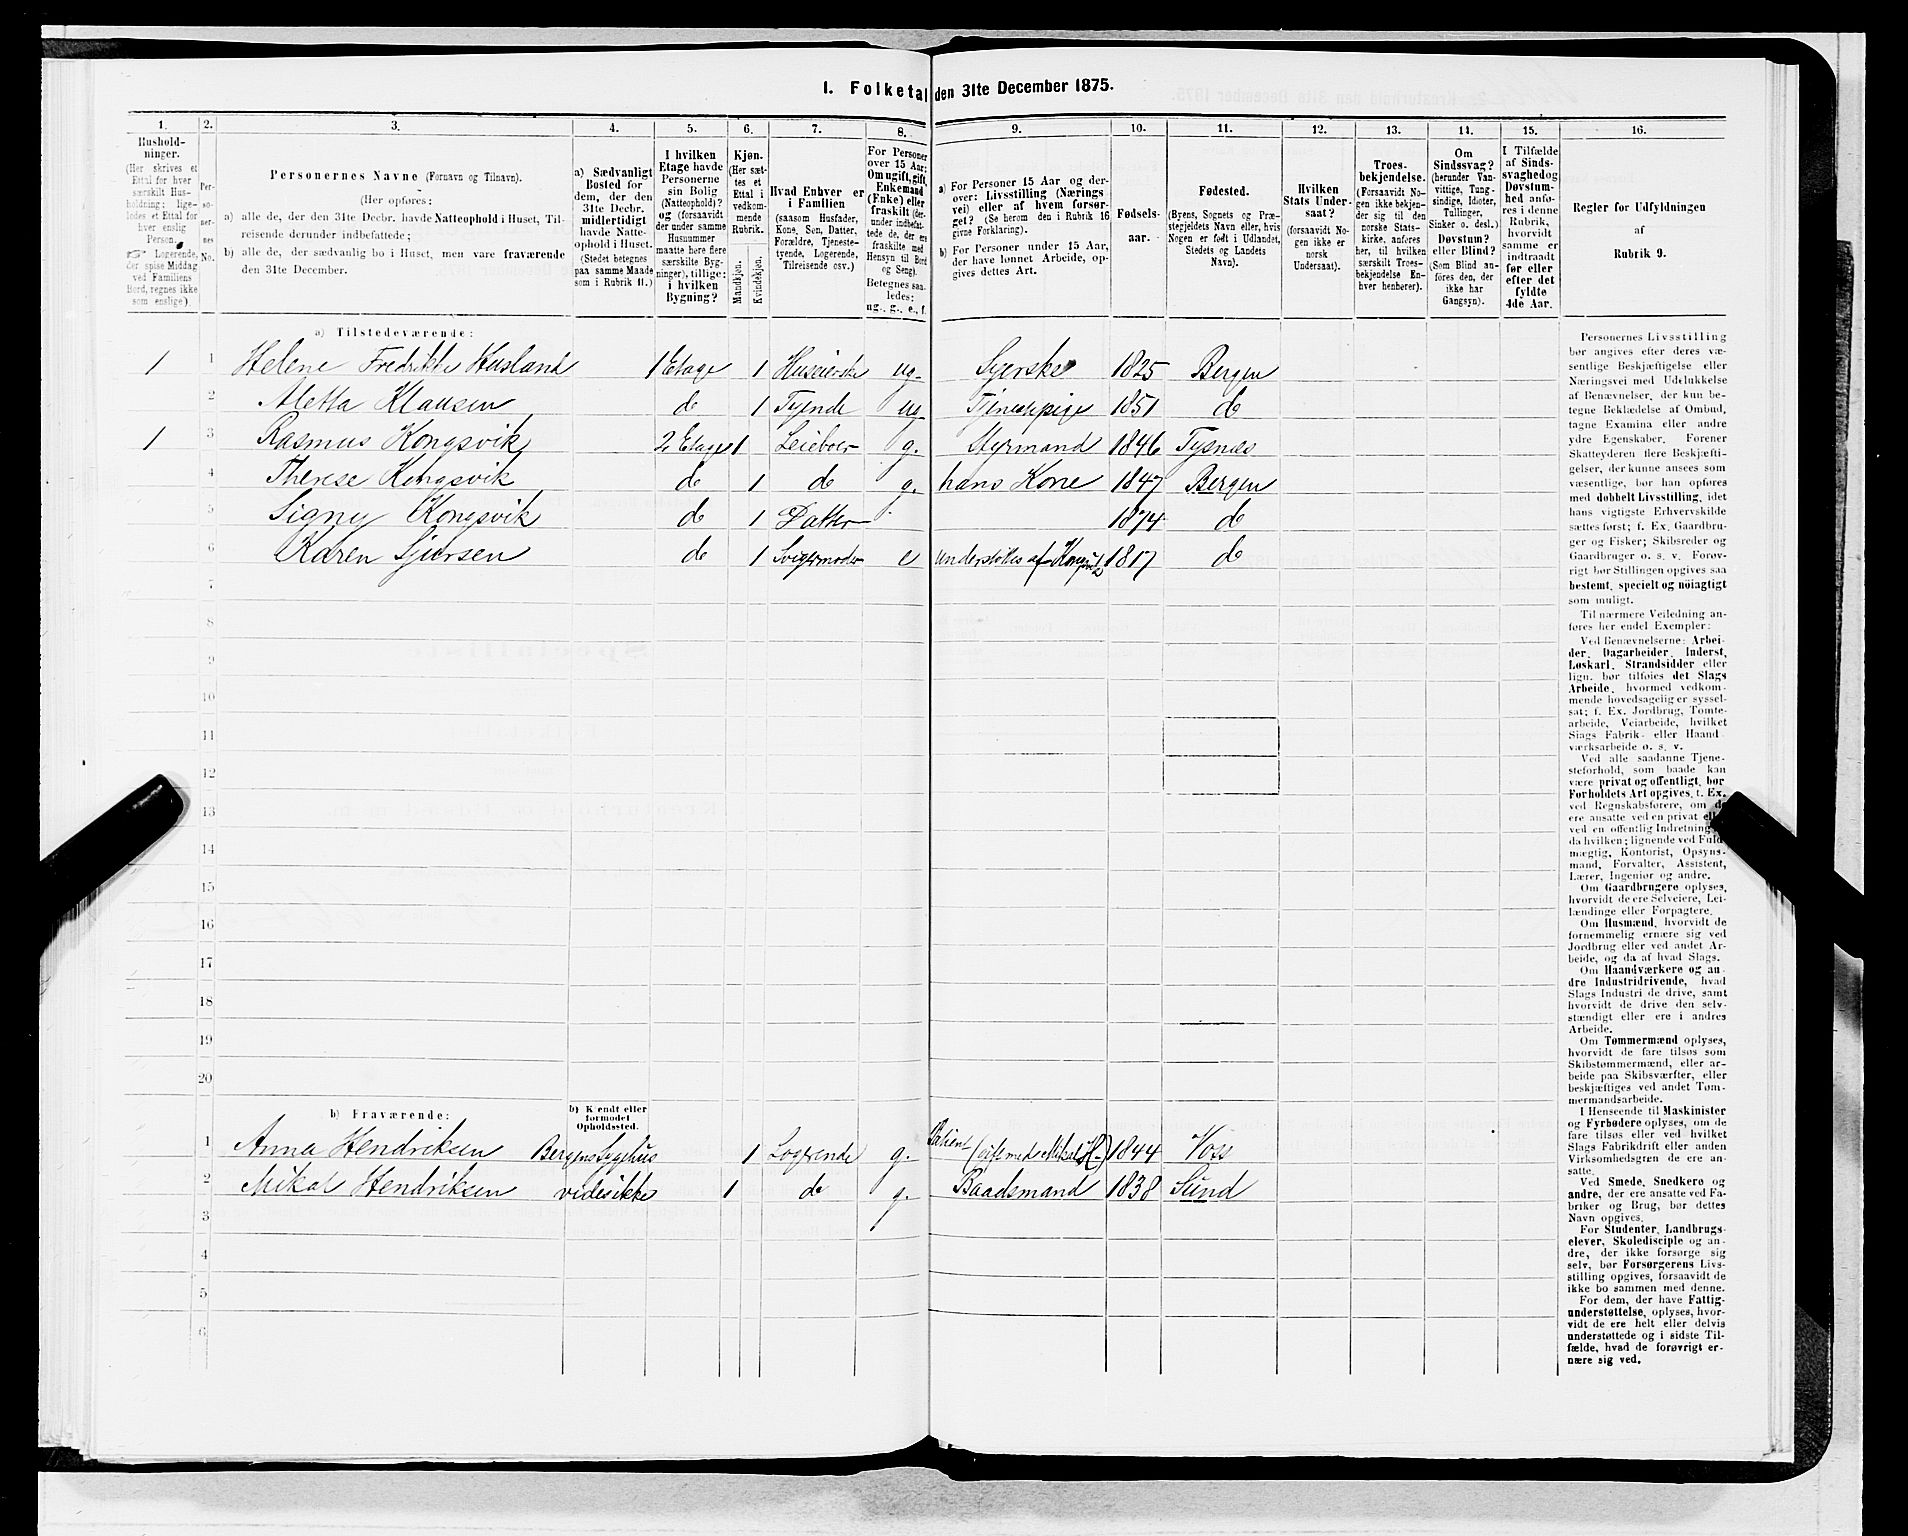 1. Folketal den 31te December 1875.
1. 2. 3. 4. 5. 6. 7. 8. 9. 10. 11. 12. 13. 14. 15. 16.
Hushold-
ninger.
(Her skrives et
Ettal for hver
særskilt Hus-
holdning; lige-
ledes et Ettal for
hver enslig
Person.
☞ Logerende,
der spise Middag
ved Familiens
Bord, regnes ikke
som enslige).
Per-
so-
ner-
nes
No.
Personernes Navne (Fornavn og Tilnavn).
(Her opføres:
a) alle de, der den 31te Decbr. havde Natteophold i Huset, Til-
reisende derunder indbefattede;
b) alle de, der sædvanlig bo i Huset, men vare fraværende
den 31te December.
a) Sædvanligt
Bosted for
dem, der den
31te Decbr.
midlertidigt
havde Natte-
ophold i Huset.
(Stedet betegnes
paa samme Maade
som i Rubrik 11.)
I hvilken
Etage havde
Personerne
sin Bolig
(Natteophold)?
og (forsaavidt
der under samme
Husnummer
maatte høre flere
særskilte Byg-
ninger), tillige:
i hvilken
Bygning?
Kjøn.
(Her sæt-
tes et
Ettal i
vedkom-
mende
Rubrik.
Mandkjøn.
Kvindekjøn.
Hvad Enhver er
i Familien
(saasom Husfader,
Kone, Søn, Datter,
Forældre, Tjeneste-
tyende, Logerende,
Tilreisende osv.)
For Personer
over 15 Aar:
Om ugift, gift,
Enkemand
(Enke) eller
fraskilt (der-
under indbefat-
tede de, der ere
fraskilte med
Hensyn til Bord
og Seng).
Betegnes saa-
ledes:
ug., g., e., f.
a) For Personer 15 Aar og der-
over: Livsstilling (Nærings-
vei) eller af hvem forsør-
get? (Se herom den i Rubrik 16
givne Forklaring).
b) For Personer under 15 Aar,
der have lønnet Arbeide, op-
gives dettes Art.
Fødsels-
aar.
Fødested.
(Byens, Sognets og Præ-
stegjeldets Navn eller, hvis
Nogen er født i Udlandet,
Stedets og Landets
Navn).
Hvilken
Stats Under-
saat?
(forsaavidt No-
gen ikke er
norsk
Undersaat).
Troes-
bekjendelse.
(Forsaavidt No-
gen ikke bekjen-
der sig til den
norske Stats-
kirke, anføres
her, til hvilken
særskilt Troes-
bekjendelse En-
hver henhører).
Om
Sindssvag?
(herunder Van-
vittige, Tung-
sindige, Idioter,
Tullinger,
Sinker o. desl.)
Døvstum?
eller Blind?
(Som Blind an-
føres den, der
ikke har
Gangsyn).
I Tilfælde
af Sinds-
svaghed og
Døvstum-
hed anfø-
res i denne
Rubrik,
hvorvidt
samme er
indtraadt
før eller
efter det
fyldte
4de Aar.
Regler for Udfyldningen
af
Rubrik 9.
a) Tilstedeværende:
1 1 Helene Fredrikke Husland 1 Etage 1 Huseierske ug. Syerske 1825 Bergen
2 Aletta Klausen do 1 Tyende ug Tjenestepige 1851 do
1 3 Rasmus Kongsvik 2 Etage 1 Leieboer g. Styrmand 1846 Tysnæs
4 Therese Kongsvik do 1 do g. hans Kone 1847 Bergen
5 Signy Kongsvik do 1 Datter 1874 do
6 Karen Sjursen do 1 Svigermoder e understøttes af Kongsvik 1817 do
7
8
9
10
11
12
13
14
15
16
17
18
19
20
b) Fraværende:
b) Kendt eller
formodet
Opholdssted.
1 Anna Hendriksen Bergens Sygehus 1 Logerende g. Patient (gift med Mikal H.) 1844 Voss
2 Mikal Hendriksen vides ikke 1 do g. Baadsmand 1838 Sund
3
4
5
6
Personernes Livsstilling
bør angives efter deres væ-
sentlige Beskjæftigelse eller
Næringsvei med Udelukkelse
af Benævnelser, der kun be-
tegne Beklædelse af Ombud,
tagne Examina eller andre
ydre Egenskaber. Forener
Skatteyderen flere Beskjæfti-
gelser, der kunne ansees som
væsentlige, bør han opføres
med dobbelt Livsstilling, idet
hans vigtigste Erhvervskilde
sættes først; f. Ex. Gaardbru-
ger og Fisker; Skibsreder og
Gaardbruger o. s. v. Forøv-
rigt bør Stillingen opgives saa
bestemt, specielt og nöiagtigt
som muligt.
Til nærmere Veiledning an-
føres her endel Exempler:
Ved Benævnelserne: Arbei-
der, Dagarbeider, Inderst,
Løskarl, Strandsidder eller
lign. bør tilføies det Slags
Arbeide, hvormed vedkom-
mende hovedsagelig er syssel-
sat; f. Ex. Jordbrug, Tomte-
arbeide, Veiarbeide, hvilket
Slags Fabrik- eller Haand-
værksarbeide o. s. v.
Ved alle saadanne Tjene-
steforhold, som baade kan
være privat og offentligt, bør
Forholdets Art opgives, f. Ex.
ved Regnskabsførere, om de
ere ansatte ved en privat eller
ved en offentlig Indretning og
da hvilken; lignende ved Fuld-
mægtig, Kontorist, Opsyns-
mand, Forvalter, Assistent,
Lærer, Ingeniør og andre.
Om Gaardbrugere oplyses,
hvorvidt de ere Selveiere, Lei-
lændinge eller Forpagtere.
Om Husmænd, hvorvidt de
fornemmelig ernære sig ved
Jordbrug eller ved andet Ar-
beide, og da af hvad Slags.
Om Haandværkere og an-
dre Industridrivende, hvad
Slags Industri de drive, samt
hvorvidt de drive den selv-
stændigt eller ere i andres
Arbeide.
Om Tømmermænd oplyses,
hvorvidt de fare tilsøs som
Skibstømmermænd, eller ar-
beide paa Skibsværfter, eller
beskjæftiges ved andet Tøm-
mermandsarbeide.
I Henseende til Maskinister
og Fyrbødere oplyses, om de
fare tilsøs eller ved hvilket
Slags Fabrikdrift eller anden
Virksomhedsgren de ere an-
satte.
Ved Smede, Snedkere og
andre, der ere ansatte ved Fa-
briker og Brug, bør dettes
Navn opgives.
For Studenter, Landbrugs-
elever, Skoledisciple og an-
dre, der ikke forsørge sig
selv, bør Forsørgerens Livs-
stilling opgives, forsaavidt de
ikke bo sammen med denne.
For dem, der have Fattig-
understøttelse, oplyses, hvor-
vidt de ere helt eller delvis
understøttede og i sidste Til-
fælde, hvad de forøvrigt er-
nære sig ved.